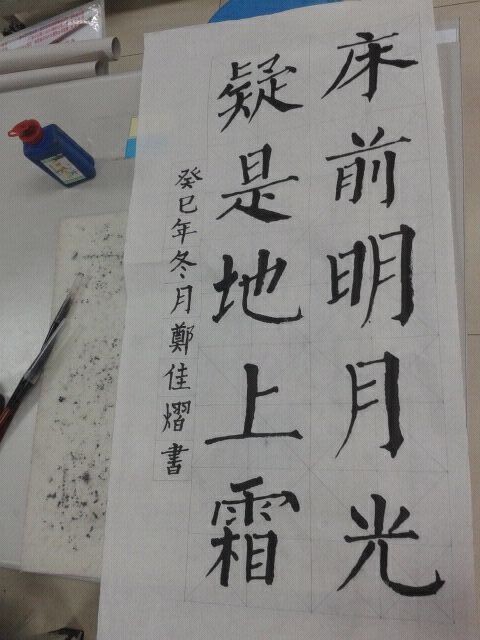 床前明月光
疑是地上霜
癸巳年冬月鄭佳熠書